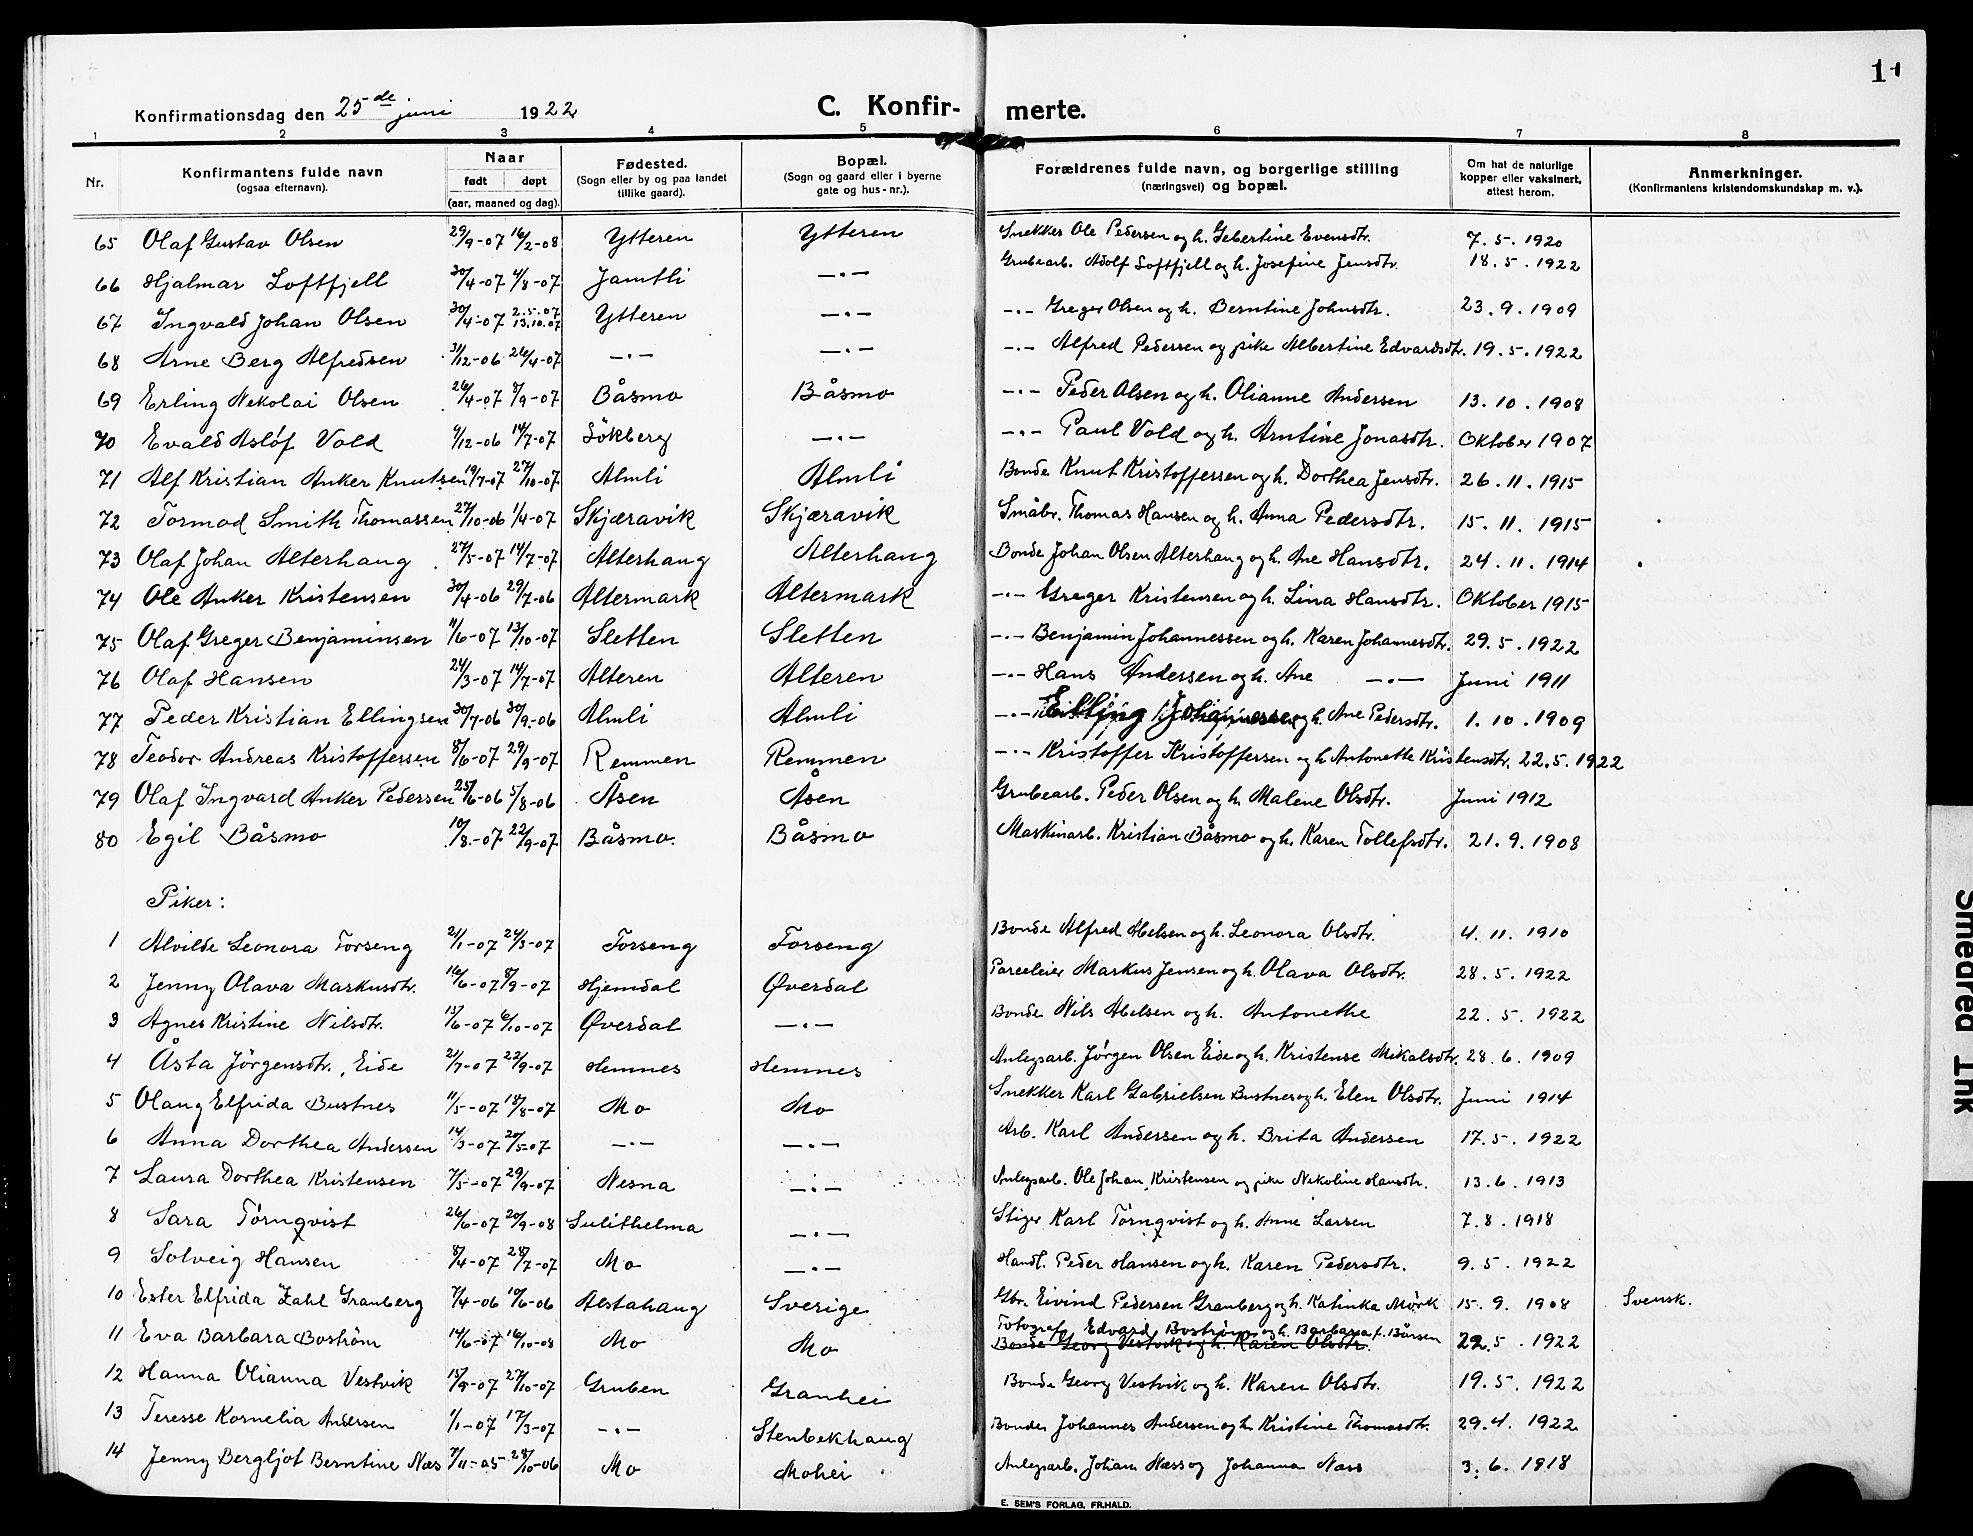 Konfirmationsdag den 25de juni 1922 C. Konfir- merte.
1 2 3 4 5 6 7 8
Nr. Konfirmantens fulde navn (ogsaa efternavn). Naar født døpt (aar, maaned og dag). Fødested. (Sogn eller by og paa landet tillike gaard). Bopæl. (Sogn og gaard eller i byerne gate og hus-nr.). Forældrenes fulde navn, og borgerlige stilling (næringsvei) og bopæl. Om hat de naturlige kopper eller vaksinert, attest herom. Anmerkninger. (Konfirmantens kristendomskundskap m. v.).
65 Olaf Gustav Olsen 29/9-07 16/2-08 Ytteren Ytteren Snekker Ole Pedersen og h. Gebertine Evensdtr. 7.5.1920
66 Hjalmar Loftfjell 30/4-07 4/8-07 Jamtli —"— Grubearb. Adolf Loftfjell og h. Josefine Jensdtr. 18.5.1922
67 Ingvald Johan Olsen 30/4-07 2.5.07 13.10.07 Ytteren —"— —"— Greger Olsen og h. Berntine Johnsdtr. 23.9.1909
68 Arne Berg Alfredsen 31/12-06 26/4-07 —"— —"— —"— Alfred Pedersen og pike Albertine Edvardsdtr. 19.5.1922
69 Erling Nekolai Olsen 26/4-07 8/9-07 Båsmo Båsmo —"— Peder Olsen og h. Olianne Andersen 13.10.1908
70 Evald Asløf Vold 9/12-06 14/7-07 Søkberg —"— —"— Paul Vold og h. Arntine Jonasdtr. Oktober 1907
71 Alf Kristian Anker Knutsen 19/7-07 27/10-07 Almli Almli Bonde Knut Kristoffersen og h. Dorthea Jensdtr. 26.11.1915
72 Tormod Smith Thomassen 27/10-06 1/4-07 Skjæravik Skjæravik Småbr. Thomas Hansen og h. Anna Pedersdtr. 15.11.1915
73 Olaf Johan Alterhaug 27/5-07 14/7-07 Alterhaug Alterhaug Bonde Johan Olsen Alterhaug og h. Ane Hansdtr. 24.11.1914
74 Ole Anker Kristensen 30/4-06 29/7-06 Altermark Altermark —"— Greger Kristensen og h. Lina Hansdtr. Oktober 1915
75 Olaf Greger Benjaminsen 11/6-07 13/10-07 Sletten Sletten —"— Benjamin Johannessen og h. Karen Johannesdtr. 29.5.1922
76 Olaf Hansen 24/3-07 14/7-07 Alteren Alteren —"— Hans Andersen og h. Ane —"— Juni 1911
77 Peder Kristian Ellingsen 30/7-06 30/9-06 Almli Almli —"— Elling Johannessen og h. Ane Pedersdtr. 1.10.1909
78 Teodor Andreas Kristoffersen 8/6-07 29/9-07 Remmen Remmen —"— Kristoffer Kristoffersen og h. Antonette Kristensdtr. 22.5.1922
79 Olaf Ingvard Anker Pedersen 25/6-06 5/8-06 Åsen Åsen Grubearb. Peder Olsen og h. Malene Olsdtr. Juni 1912
80 Egil Båsmo 10/8-07 22/9-07 Båsmo. Båsmo Maskinarb. Kristian Båsmo og h. Karen Tollefsdtr. 21.9.1908
Piker:
1 Alvilde Leonora Forseng 2/1-07 24/3-07 Forseng Forseng Bonde Alfred Abelsen og h. Leonora Olsdtr. 4.11.1910
2 Jenny Olava Markusdtr. 16/6-07 8/9-07 Hjemdal Øverdal Parceleier Markus Jensen og h. Olava Olsdtr. 28.5.1922
3 Agnes Kristine Nilsdtr. 15/6-07 6/10-07 Øverdal —"— Bonde Nils Abelsen og h. Antonethe 22.5.1922
4 Åsta Jørgensdtr. Eide 21/7-07 22/9-07 Hemnes Hemnes Anlegsarb. Jørgen Olsen Eide og h. Kristense Mikalsdtr. 28.6.1909
5 Olaug Elfrida Bustnes 11/5-07 18/8-07 Mo Mo Snekker Karl Gabrielsen Bustnes og h. Elen Olsdtr. Juni 1914
6 Anna Dorthea Andersen 14/3-07 20/5-07 —"— —"— Arb. Karl Andersen og h. Brita Andersen 17.5.1922
7 Laura Dorthea Kristensen 7/5-07 29/9-07 Nesna —"— Anlegsarb. Ole Johan Kristensen og pike Nikoline Hansdtr. 13.6.1913
8 Sara Tørnqvist 26/6-07 20/9-08 Sulithelma —"— Stiger Karl Tørnqvist og h. Anne Larsen 7.8.1918
9 Solveig Hansen 8/4-07 28/7-07 Mo —"— Handl. Peder Hansen og h. Karen Pedersdtr. 9.5.1922
10 Ester Elfrida Zahl Granberg 7/4-06 10/6-06 Alstahaug Sverige Gbr. Eivind Pedersen Granberg og h. Katinka Mørk 15.9.1908 Svensk.
11 Eva Barbara Boström 14/6-07 16/10-08 Mo Mo Fotograf Edvard Boström og h. Barbara f. Båsen 22.5.1922
Bonde Georg Vestvik og h. Karen Olsdtr.
12 Hanna Olianna Vestvik 15/9-07 27/10-07 Gruben Granhei Bonde Georg Vestvik og h. Karen Olsdtr. 19.5.1922
13 Teresse Kornelia Andersen 1/1-07 17/3-07 —"— Stenbekhaug Bonde Johannes Andersen og h. Kristine Thomasdtr. 29.4.1922
14 Jenny Bergljot Berntine Næs 7/11-05 28/10-06 Mo Mohei Anlegsarb. Johan Næss og Johanna Næss 3.6.1918
E. SEM'S FORLAG, FR.HALD.
Smedred Ink